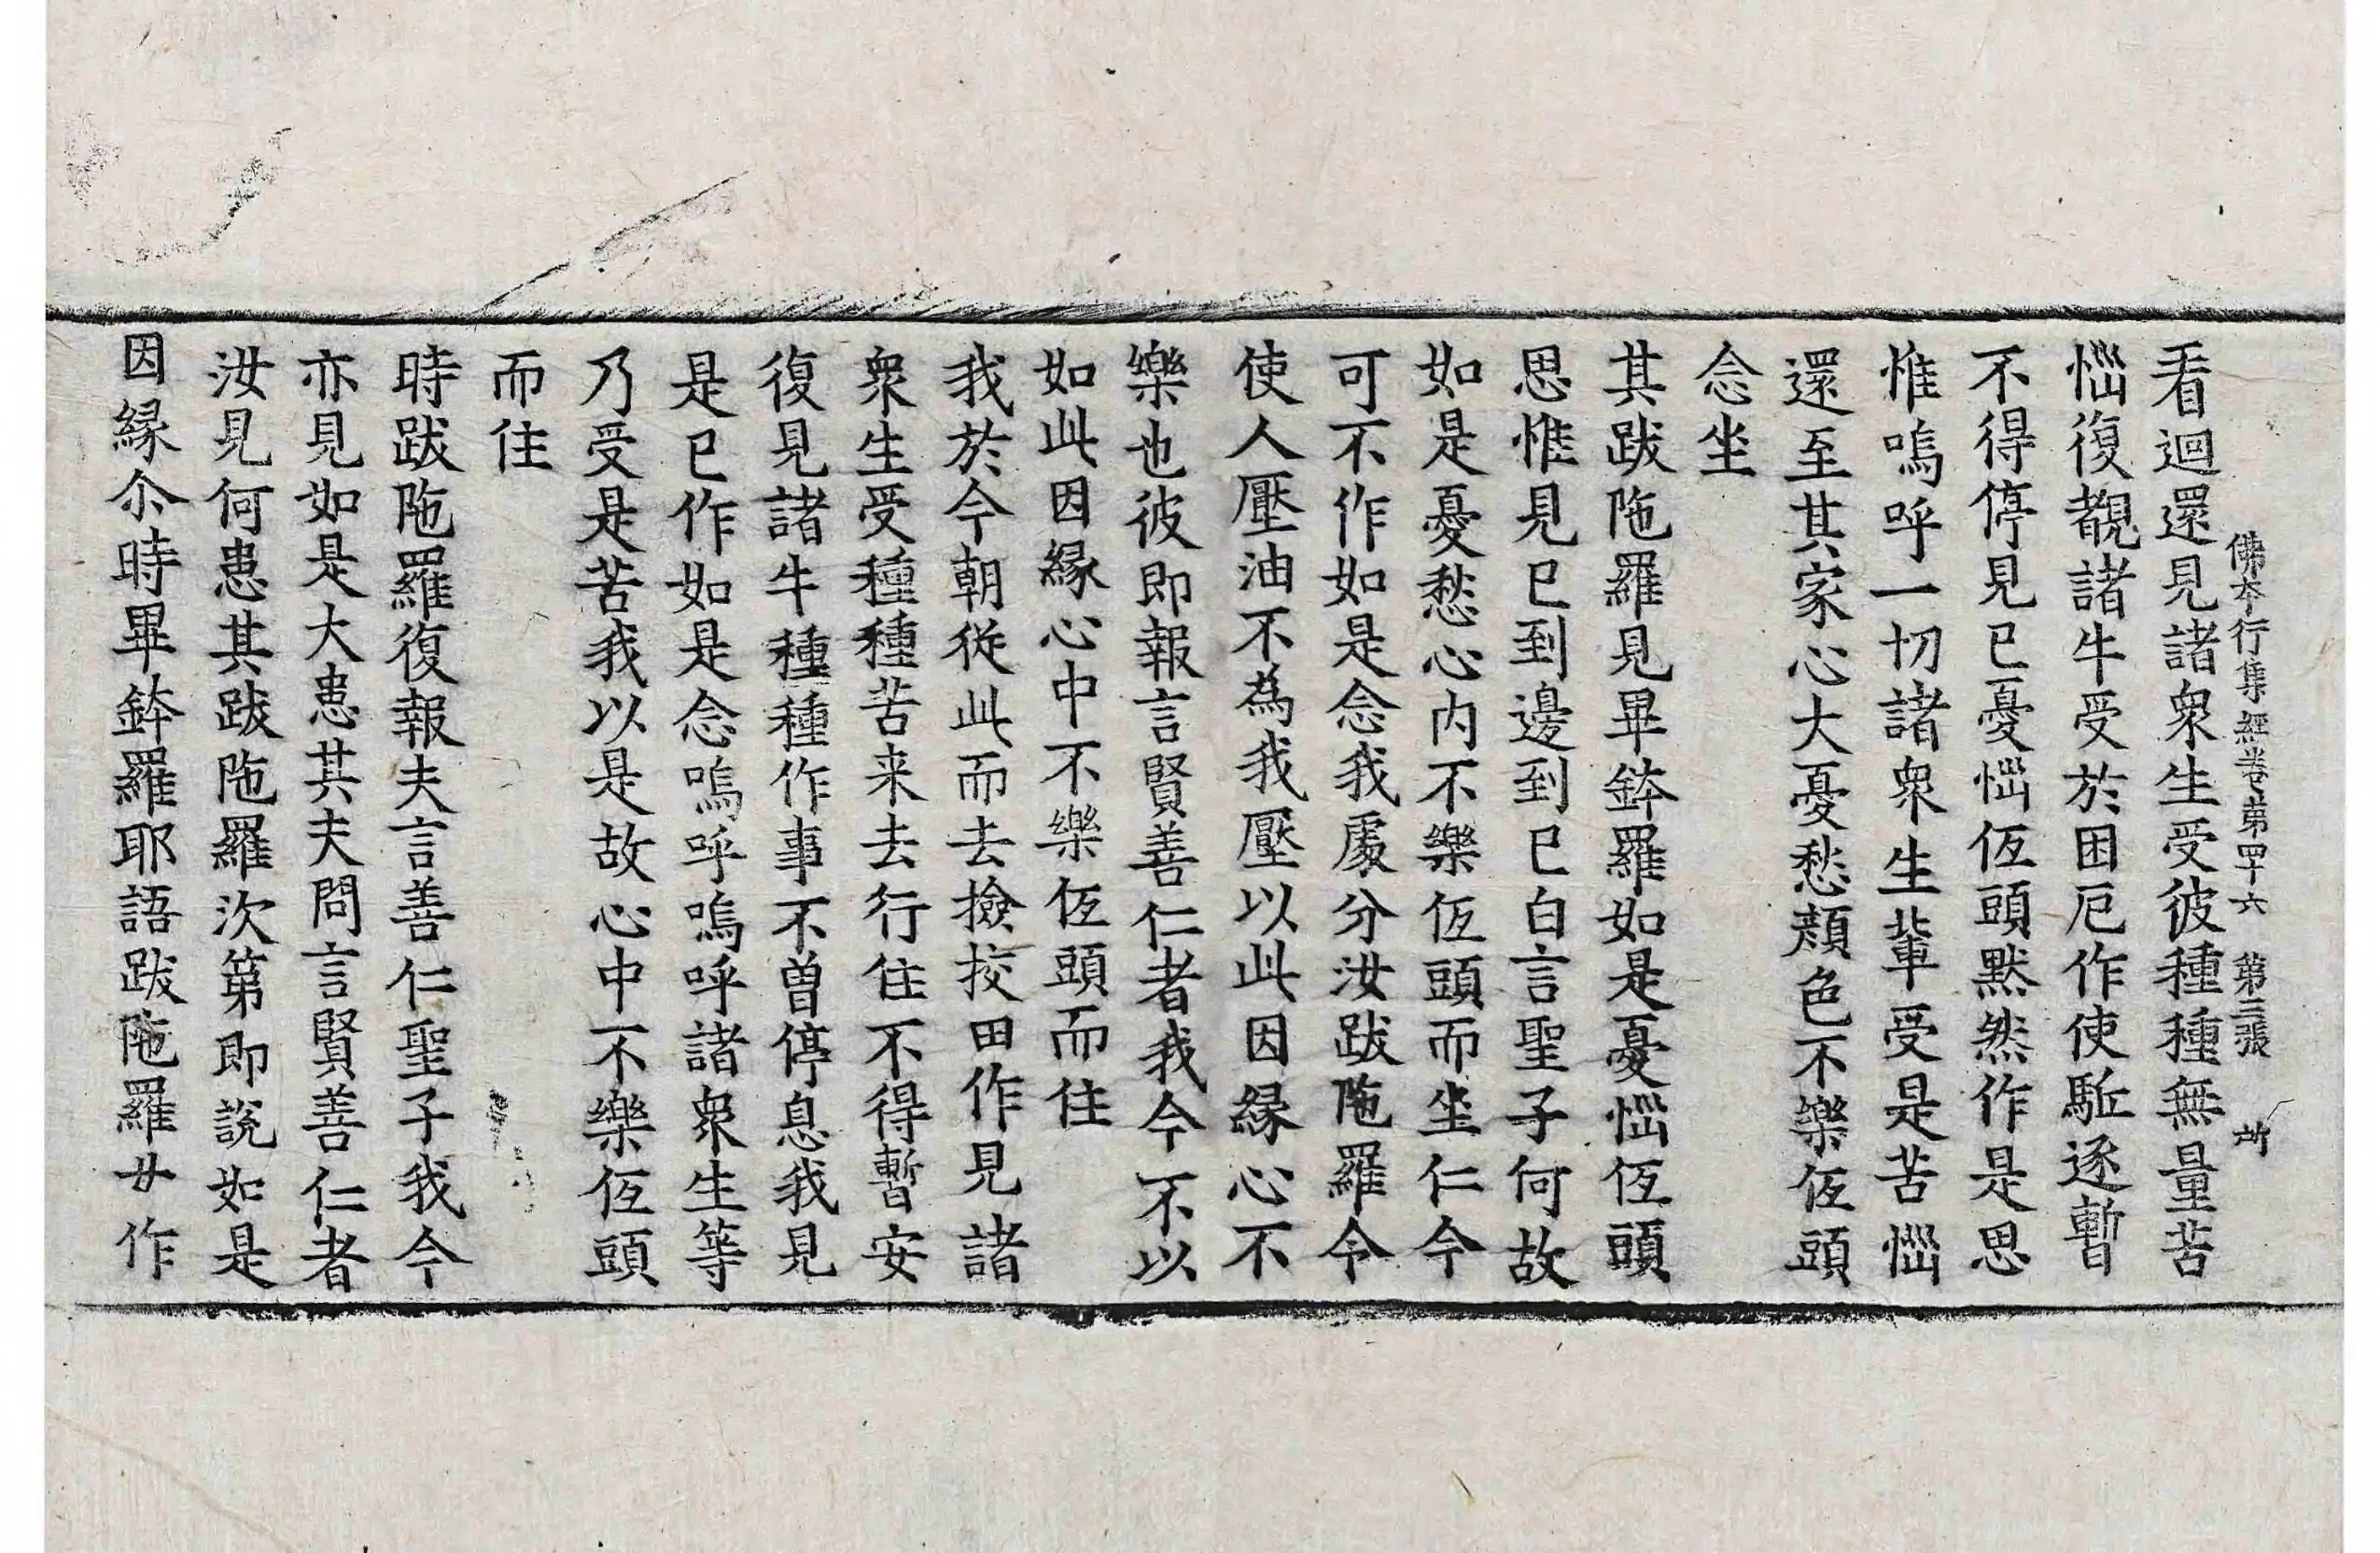 佛本行集經卷第四十六 第三張 所
看迴還見諸衆生受彼種種無量苦
惱復覩諸牛受於困厄作使駈逐暫
不得停見已憂惱低頭默然作是思
惟嗚呼一切諸衆生輩受是苦惱
還至其家心大憂愁顏色不樂低頭
念坐
其跋陁羅見畢鉢羅如是憂惱低頭
思惟見已到邊到已白言聖子何故
如是憂愁心內不樂低頭而坐仁今
可不作如是念我處分汝跋陁羅令
使人壓油不為我壓以此因緣心不
樂也彼即報言賢善仁者我今不以
如此因緣心中不樂低頭而住
我於今朝從此而去撿挍田作見諸
衆生受種種苦来去行住不得暫安
復見諸牛種種作事不曽停息我見
是已作如是念嗚呼嗚呼諸衆生等
乃受是苦我以是故心中不樂低頭
而住
時跋陁羅復報夫言善仁聖子我今
亦見如是大患其夫問言賢善仁者
汝見何患其跋陁羅次第即說如是
因緣尒時畢鉢羅耶語跋陁羅女作